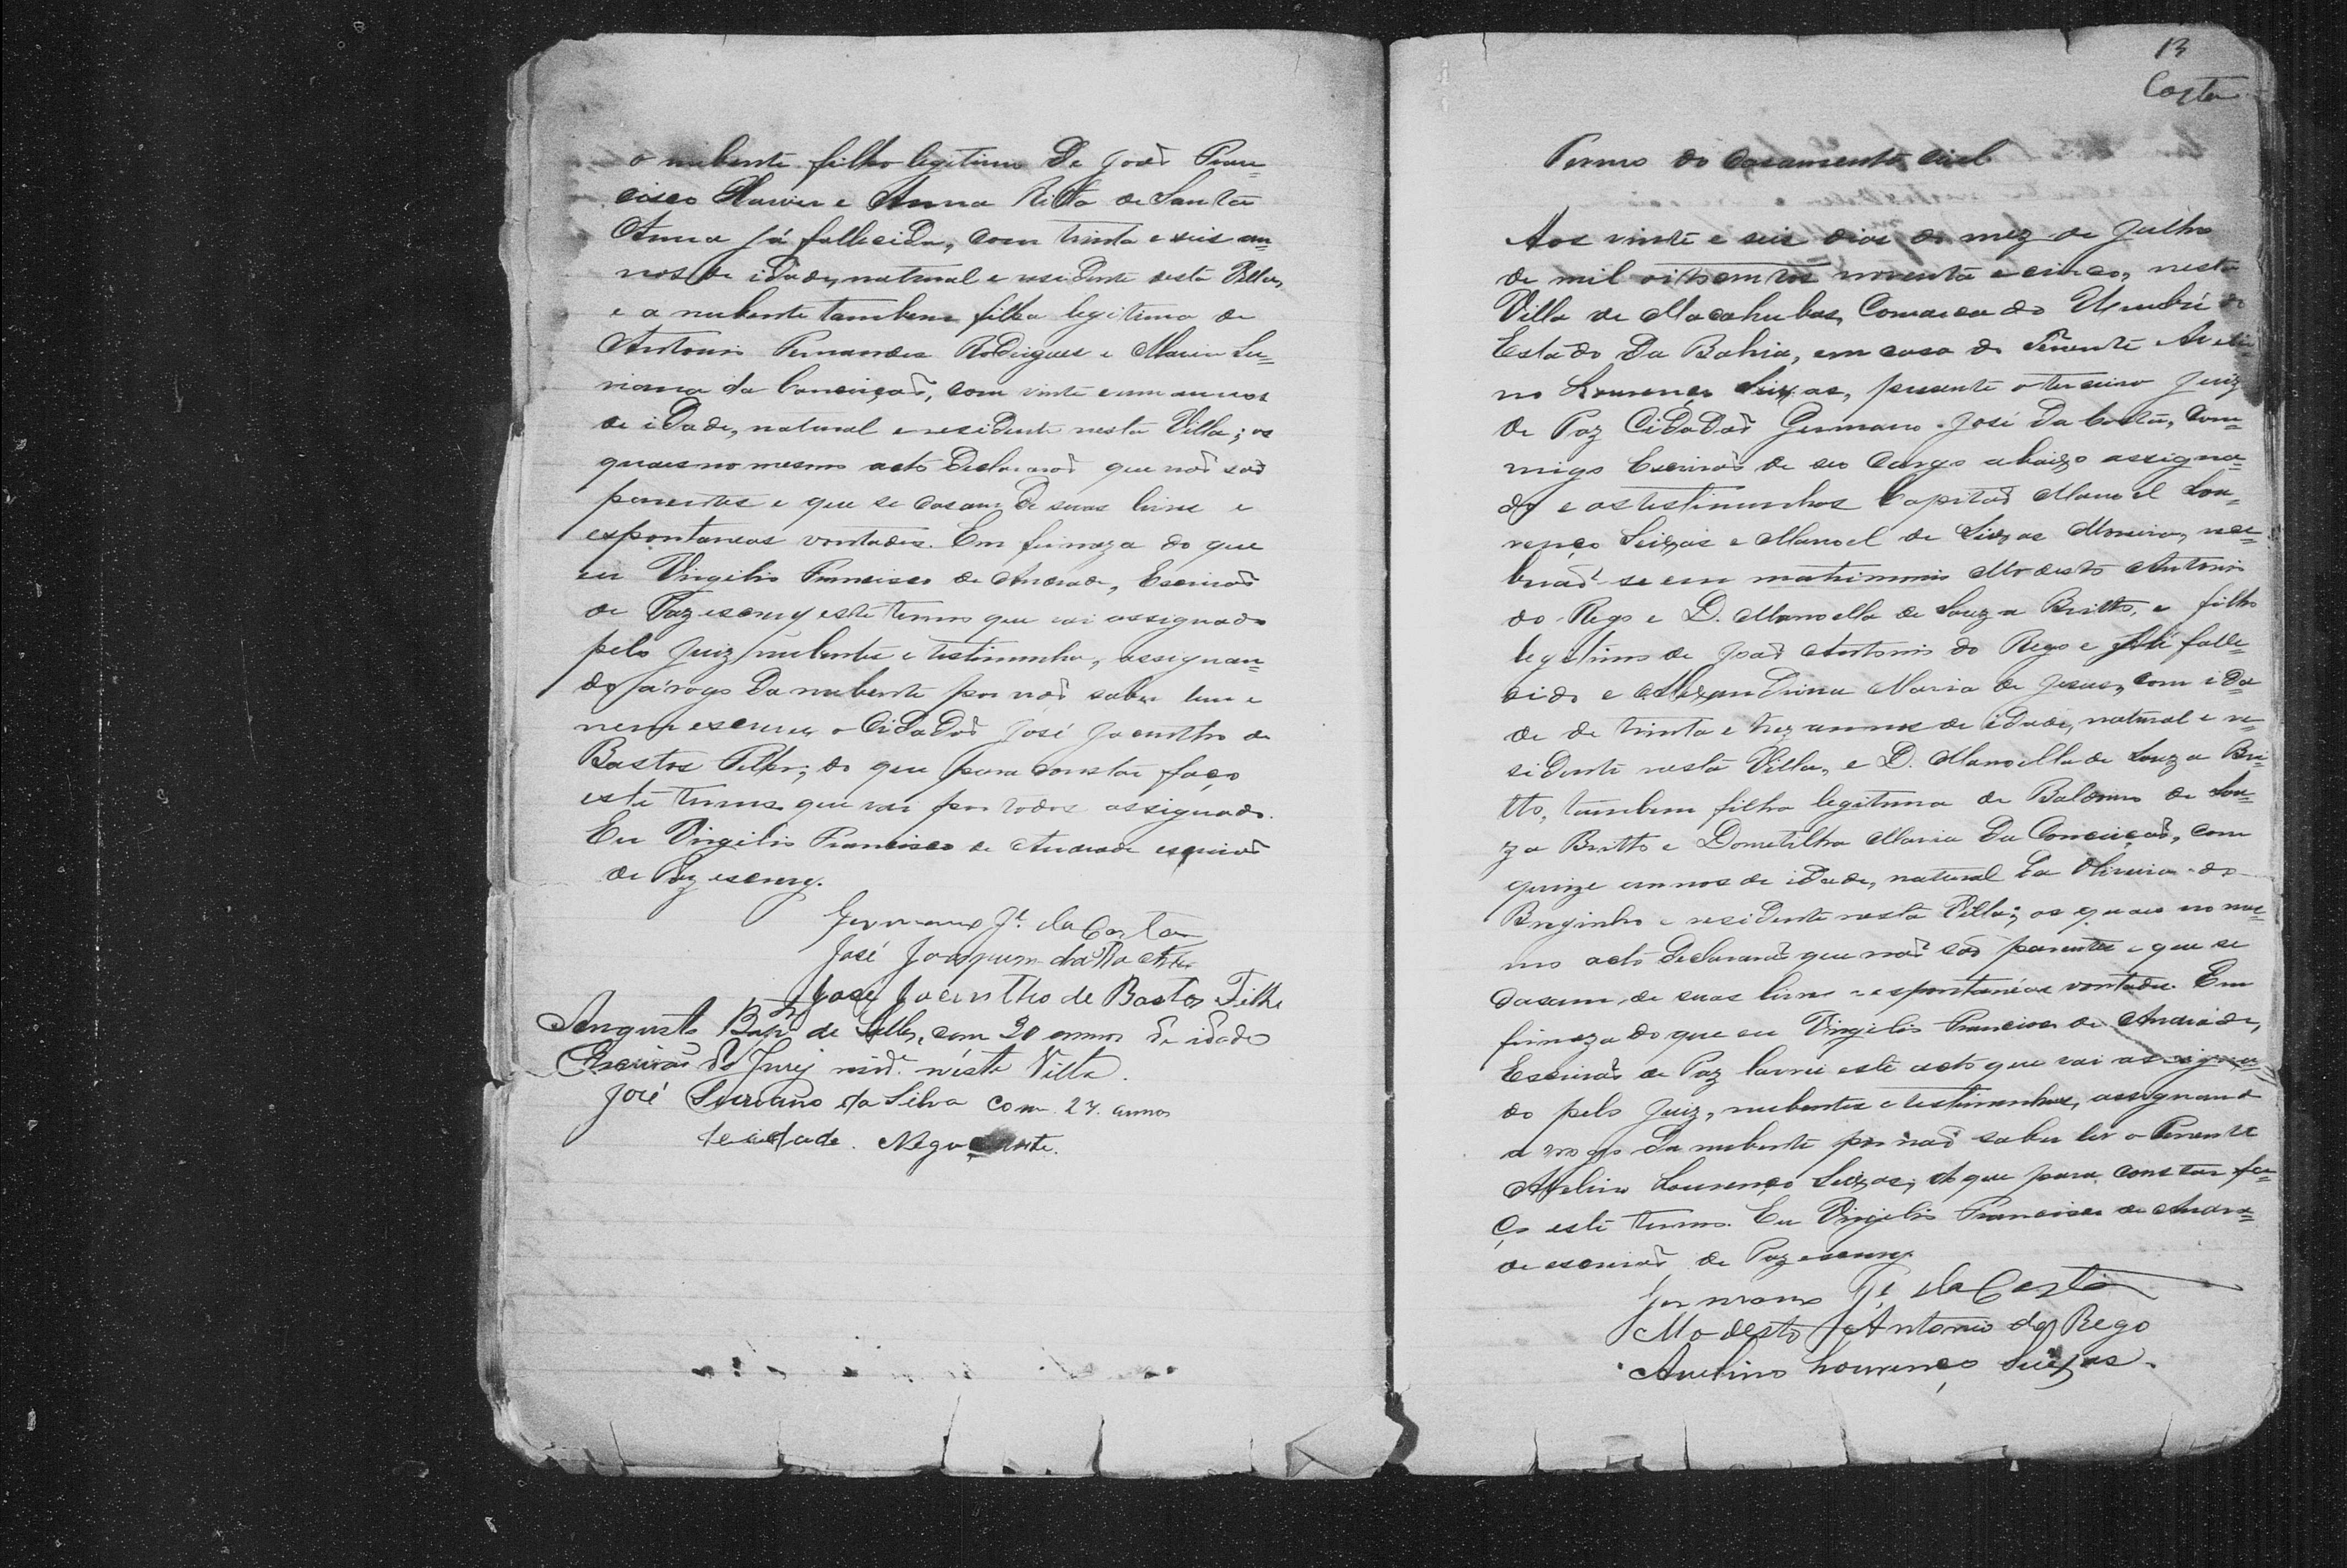 o nubente filho legitimo de João Fran=
cisco Xavier e Anna Ritta de Santa
Anna já fallecida, com trinta e seis an=
nos de idade, natural e residente nesta Villa,
e a nubente tambem filha legitima de
Antonio Fernandes Rodrigues e Maria
da Conceição, com vinte e um annos
de idade, natural e residente nesta Villa; os
quaes no mesmo acto declararão que não são
parentes e que se casam de suas livres e
expontaneas vontades. Em firmeza do que
eu Virgilio Francisco de Andrade, Escrivão
de Paz escrevy este termo que vai assignado
pelo Juiz, nubentes e testimunhas, assignan=
do a rogo da nubente por não saber ler e
nem escrever o Cidadão José Jacintho de
Bastos Filho; do que para constar faço
este termo que vai por todos assignado.
Eu Virgilio Francisco de Andrade escrivão
de Paz escrevy.
Germano Jé. da Costa
José Joaquim da Rocha
José Jacintho de Bastos Filho
Augusto Bapta de Salles, com 30 annos de idade
Escrivão do Jury resid.e nésta Villa.
José da Silva com 27 annos
de idade. Negociante.
13
Costa
Termo do casamento civel
Aos vinte e seis dias do mez de Julho
de mil oitocentos noventa e cinco, nesta
Villa de Macahubas, Comarca do Urubú do
Estado da Bahia, em casa do Tenente Aveli=
no Lourenço Seixas, presente o terceiro Juiz
de Paz Cidadão Germano José da Costa, com=
migo Escrivão de seo Cargo abaixo assigna=
do e as testimunhas Capitão Manoel Lou=
renço Seixas e Manoel de Seixas Moreira, rece=
berão-se em matrimonio Modesto Antonio
do Rego e D. Manoella de Souza Britto, e filho
legitimo de João Antonio do Rego e falle=
cido e Alexandrina Maria de Jesus, com ida=
de de trinta e trez annos de idade, natural e re=
sidente nesta Villa, e D. Manoella de Souza Bri=
tto, tambem filha legitima de Baldoino de Sou=
za Britto e Dometilha Maria da Conceição, com
quinze annos de idade, natural da Oliveira do
Brejinho e residente nesta Villa; os quaes no mes=
mo acto declararão que não são parentes e que se
casam de suas livres e espontaneas vontades. Em
firmeza do que eu Virgilio Francisco de Andrade,
Escrivão de Paz lavrei este acto que vai assigna=
do pelo Juiz, nubentes e testimunhas, assignando
a rogo da nubente por não saber ler o Tenente
Avelino Lourenço Seixas; do que para constar fa=
ço este termo. Eu Virgilio Francisco de Andra=
de escrivão de Paz escrevy
Germano Jé. da Costa
Modesto Antonio do Rego
Avelino Lourenço Seixas.